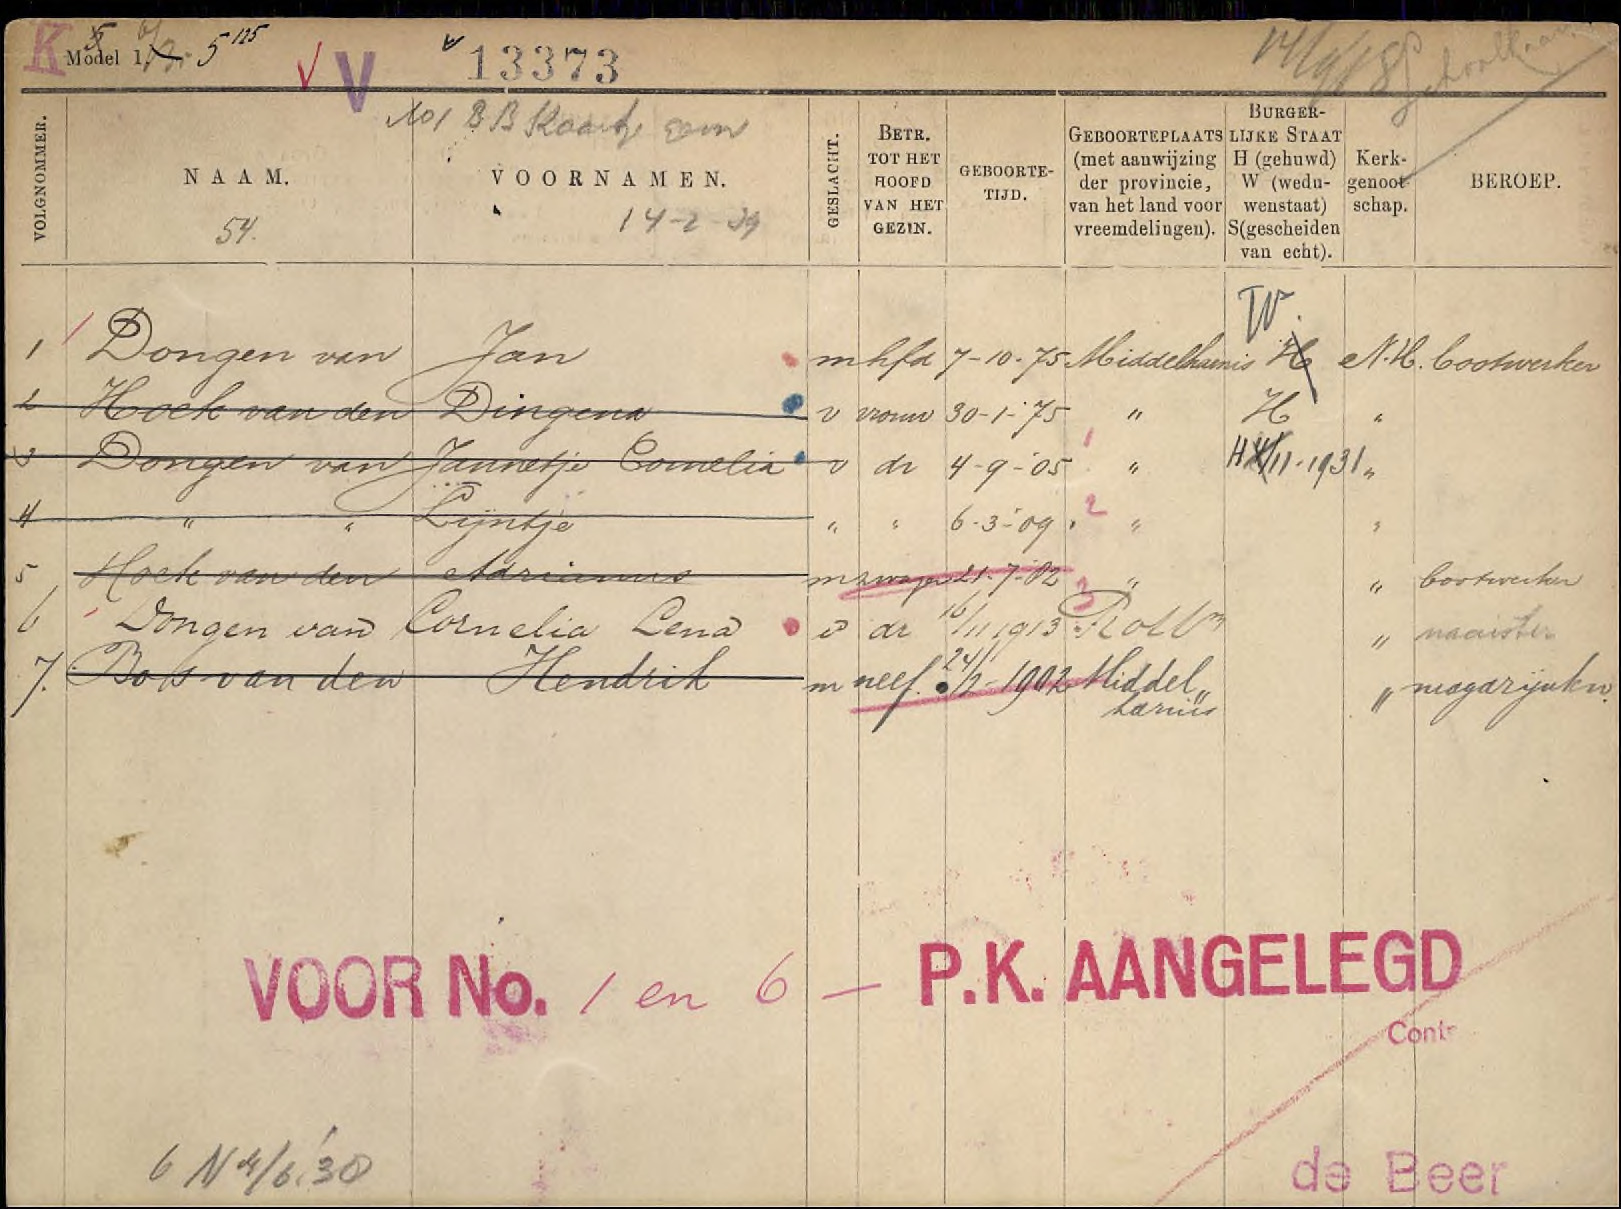 K Model 1 5 125 V 13373
No 1 B B Kaart
VOLGNOMMER. NAAM. VOORNAMEN. GESLACHT. BETR. TOT HET HOOFD VAN HET GEZIN. GEBOORTE-TIJD. GEBOORTEPLAATS (met aanwijzing der provincie, van het land voor vreemdelingen). BURGER-LIJKE STAAT H (gehuwd) W (wedu-wenstaat) S(gescheiden van echt). Kerk-genoot-schap. BEROEP.
54. 14-2-39
W.
1 Dongen van Jan m hfd 7-10-75 Middelharnis H N.H. bootwerker
2 Hoek van den Dingena v vrouw 30-1-75 " H "
3 Dongen van Jannetje Cornelia v dr 4-9-05 1 " H 11-1931 "
4 " " Lijntje " " 6-3-09 2 " "
5 Hoek van den Adrianus m zwager 21-7-82 3 " " bootwerker
6 Dongen van Cornelia Lena v dr 16/11 1913 Rott " naaister
7. Bos van den Hendrik m neef 24/2-1902 Middel " "
harnis
VOOR No. 1 en 6 - P.K. AANGELEGD
Contr
6 N 4/6.'30
de Beer